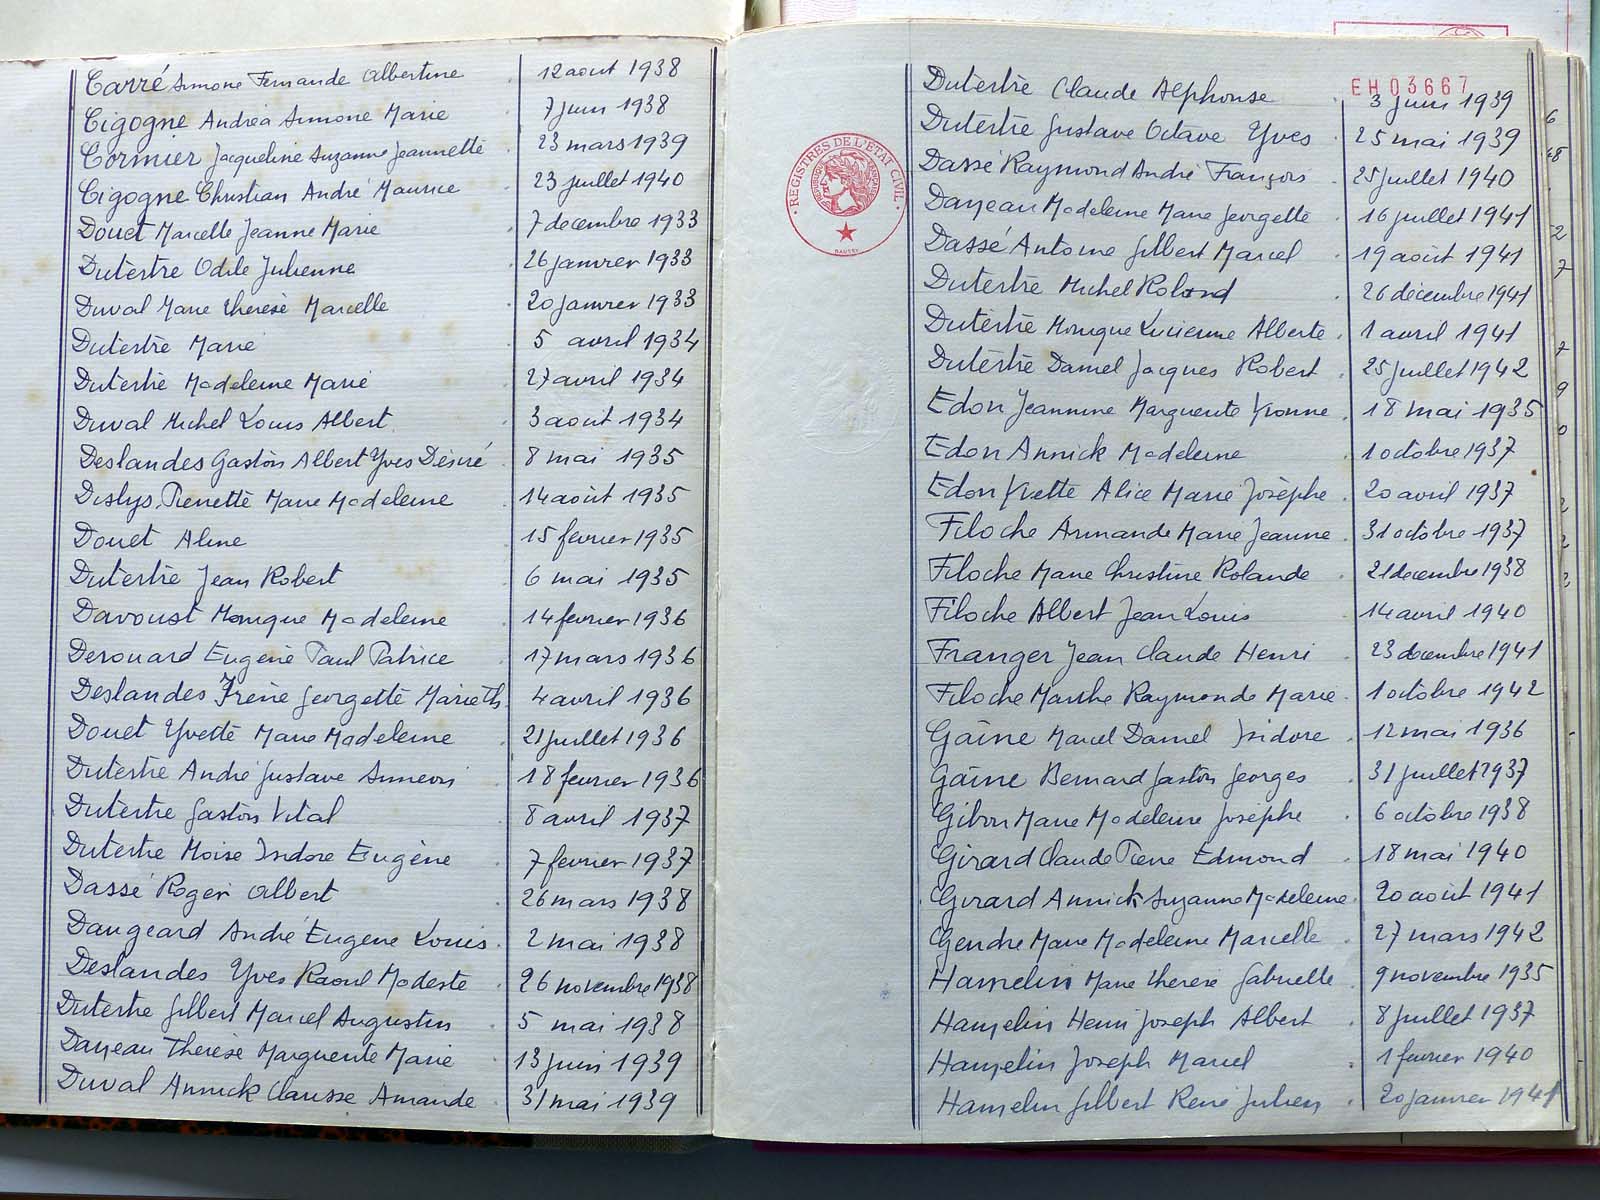 Carré Simone Fernande Albertine 12 aout 1938
Cigogne Andréa Simone Marie 7 juin 1938
Cormier Jacqueline Suzanne Jeannette 23 mars 1939
Cigogne Christian André Maurice 23 juillet 1940
Douet Marcelle Jeanne Marie 7 decembre 1933
Dutertre Odile Julienne 26 janvier 1933
Duval Marie Therese Marcelle 20 janvier 1933
Dutertre Marie 5 avril 1934
Dutertre Madeleine Marie 27 avril 1934
Duval Michel Louis Albert 3 août 1934
Deslandes Gaston Albert Yves Désiré 8 mai 1935
Deslys Pierrette Marie Madeleine 14 août 1935
Douet Aline 15 fevrier 1935
Dutertre Jean Robert 6 mai 1935
Davoust Monique Madeleine 14 fevrier 1936
Derouard Eugène Paul Patrice 17 mars 1936
Deslandes Irène Georgette Marie Th. 4 avril 1936
Douet Yvette Marie Madeleine 21 juillet 1936
Dutertre André Gustave Simeon 18 fevrier 1936
Dutertre Gaston Vital 8 avril 1937
Dutertre Moise Isidore Eugène 7 fevrier 1937
Dassé Roger Albert 26 mars 1938
Daugeard André Eugene Louis 2 mai 1938
Deslandes Yves Raoul Modeste 26 novembre 1938
Dutertre Gilbert Marcel Augustin 5 mai 1938
Dayeau Therese Marguerite Marie 13 juin 1939
Duval Annick Clarisse Amande 31 mai 1939
EH03667
REGISTRES DE L'ETAT CIVIL
Dutertre Claude Alphonse 3 juin 1939
Dutertre Gustave Octave Yves 25 mai 1939
Dassé Raymond André François 25 juillet 1940
Dayeau Madeleine Marie Georgette 16 juillet 1941
Dassé Antoine Gilbert Marcel 19 août 1941
Dutertre Michel Roland 26 décembre 1941
Dutertre Monique Lucienne Alberte 1 avril 1941
Dutertre Daniel Jacques Robert 25 juillet 1942
Edon Jeannine Marguerite Yvonne 18 mai 1935
Edon Annick Madeleine 1 octobre 1937
Edon Yvette Alice Marie Josèphe 20 avril 1937
Filoche Armande Marie Jeanne 31 octobre 1937
Filoche Marie Christine Rolande 21 decembre 1938
Filoche Albert Jean Louis 14 avril 1940
Franger Jean Claude Henri 23 decembre 1941
Filoche Marthe Raymonde Marie 1 octobre 1942
Gaîne Marcel Daniel Isidore 12 mai 1936
Gaîne Bernard Gaston Georges 31 juillet 1937
Gibon Marie Madeleine Josèphe 6 octobre 1938
Girard Claude Pierre Edmond 18 mai 1940
Girard Annick Suzanne Madeleine 20 août 1941
Gendre Marie Madeleine Marcelle 27 mars 1942
Hamelin Marie Therese Gabrielle 9 novembre 1935
Hamelin Henri Joseph Albert 8 juillet 1937
Hamelin Joseph Marcel 1 fevrier 1940
Hamelin Gilbert René Julien 20 janvier 1941